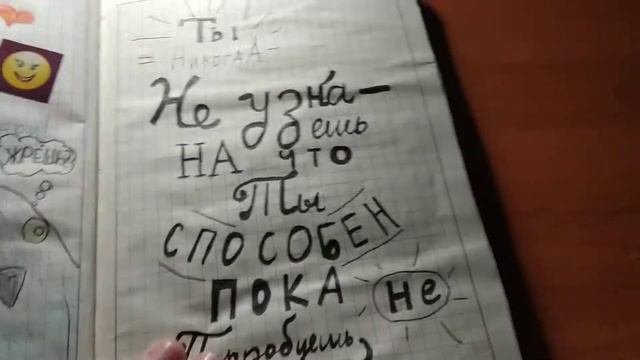 ЖРЕШЬ?
Ты
Никогда-
Не узна-
ешь
НА что
Ты
СПОСОБЕН
ПОКА не
Попробуешь